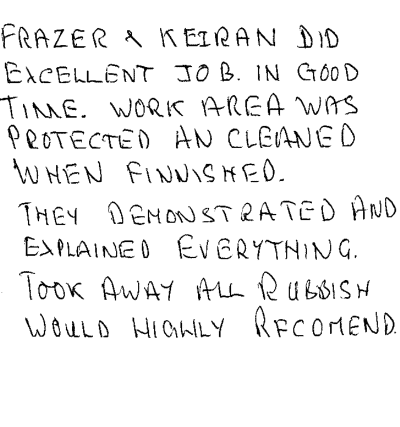 FRAZER & KEIRAN DID
EXCELLENT JOB. IN GOOD
TIME. WORK AREA WAS
PROTECTED AN CLEANED
WHEN FINNISHED.
THEY DEMONSTRATED AND
EXPLAINED EVERYTHING.
TOOK AWAY ALL RUBBISH
WOULD HIGHLY RECOMEND.